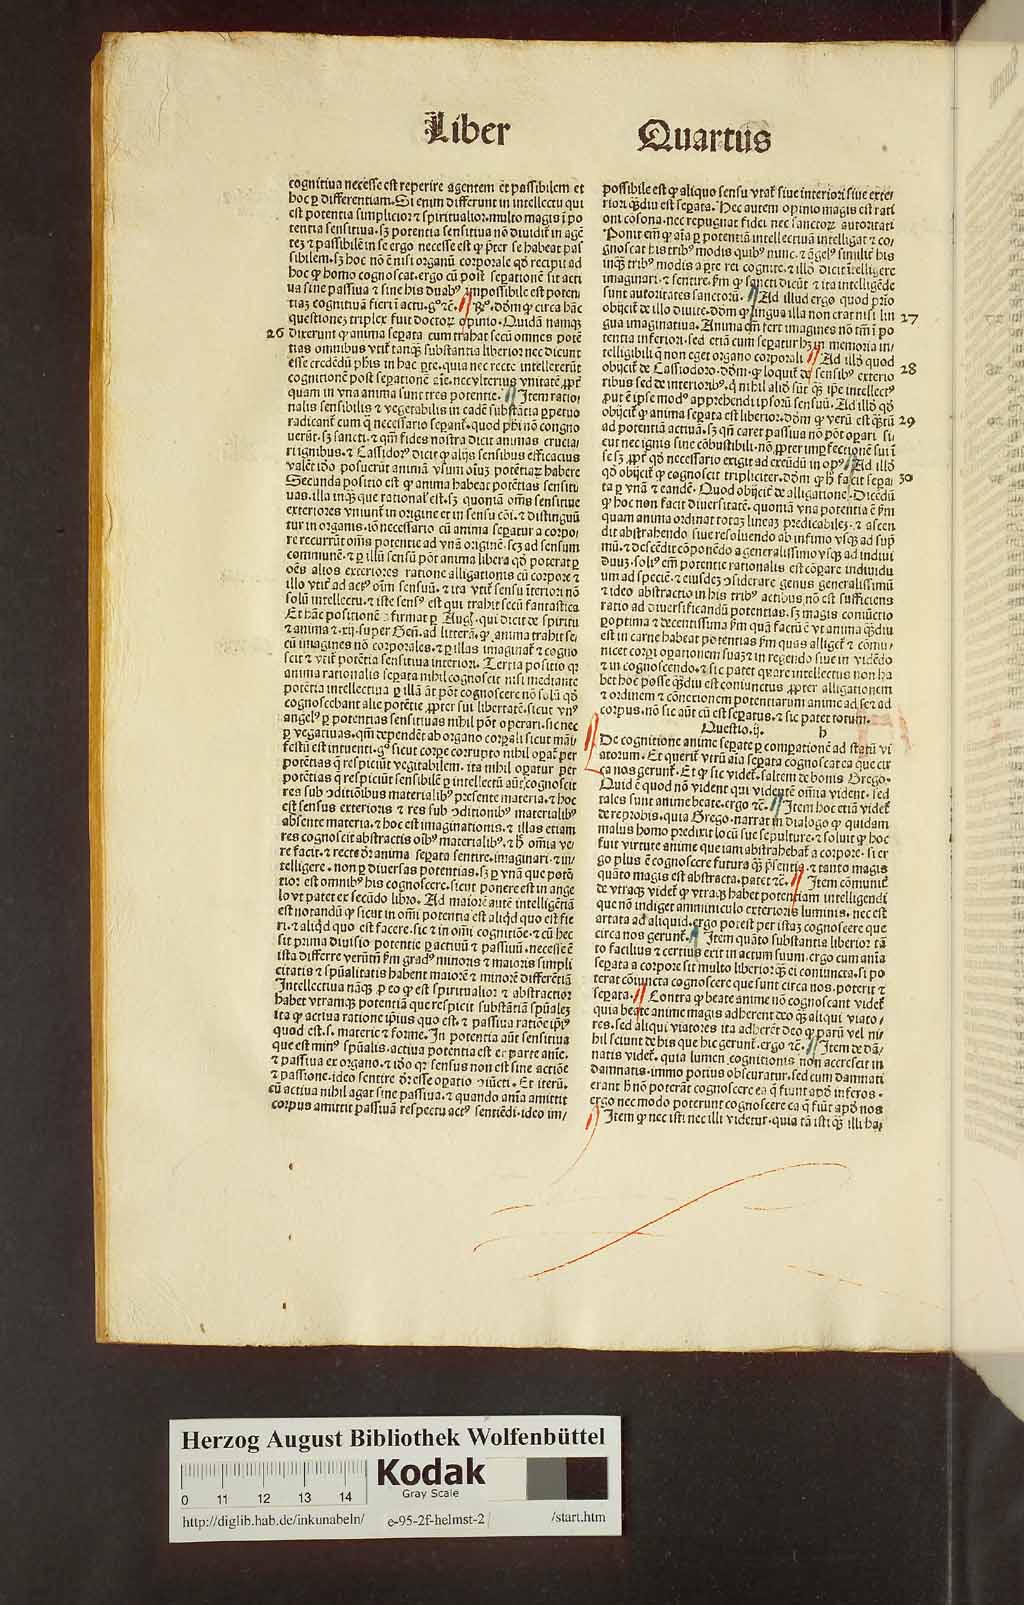 Liber Quartus
cognitiua necesse est reperire agentem et passibilem et
hoc ꝑ differentiam. Si enim differunt in intellectu qui
est potentia simplicior ⁊ spiritualior. multo magis ĩ po
tentia sensitiua. sꝫ potentia sensitiua nō diuidit̃ in agē
teꝫ ⁊ passibilē in se ergo necesse est ꝙ p̄ter se habeat pas
sibilem. sꝫ hoc nō ē nisi organū corporale qd̓ recipit ad
hoc ꝙ homo cognoscat. ergo cū post seꝑationē sit acti
ua sine passiua ⁊ sine his duabꝰ impossibile est poten
tiaꝫ cognitiuā fieri actu. gͦ ⁊c̄. Rͦ. dōm ꝙ circa hāc
questioneꝫ triplex fuit doctoꝝ opinio. Quidā namqꝫ
26 dixerunt ꝙ anima seꝑata cum trahat secū omnes potē
tias omnibus vtit̃ tanqꝫ substantia liberior nec dicunt
esse credēdū ph̄is in hac ꝑte. quia nec recte intellexerūt
cognitionē post seꝑationē aīe. nec vlterius vnitatē. ꝓpt̃
quam in vna anima sunt tres potentie. Item ratio
nalis sensibilis ⁊ vegetabilis in eadē substātia ꝑpetuo
radicant̃ cum q̄ necessario seꝑant̃. quod ph̄i nō congno
uerūt. sꝫ sancti. ⁊ qm̄ fides nostra dicit animas crucia
ri ignibus. ⁊ Cassidoꝝ dicit ꝙ alijs sensibus efficacius
valēt iō̃ posuerūt animā vsum oīuꝫ potētiaꝝ habere
Secunda positio est ꝙ anima habeat potētias sensiti
uas. illa inqꝫ que rational̓ est. sꝫ quoniā om̄s sensitiue
exteriores vniunt̃ in origine et in sensu cōi. ⁊ distinguū
tur in organis. iō necessario cū anima seꝑatur a corpo
re recurrūt om̄s potentie ad vnā originē. seꝫ ad sensum
communē. ⁊ ꝑ illū sensū pōt anima libera qd̓ poterat ꝑ
oēs alios exteriores ratione alligationis cū corpore ⁊
illo vtit̃ ad actꝰ oīm sensuū. ⁊ ita vtit̃ sensu īteriori nō
solū intellectu. ⁊ iste sensꝰ est qui trahit secū fantastica
Et hāc positionē ꝯfirmat ꝑ Augꝰ. qui dicit de spiritu
⁊ anima. ⁊ .xij. super Gen̄. ad litterā. ꝙ anima trahit se
cū imagines nō corporales. ⁊ ꝑ illas imaginat̃ ⁊ cogno
scit ⁊ vtit̃ potētia sensitiua interiori. Tertia positio q̓
anima rationalis seꝑata nihil cognoscit nisi mediante
potētia intellectiua ꝑ illā āt pōt cognoscere nō solū qd̓
cognoscebant alie potētie ꝓpter sui libertatē. sicut vnꝰ
angelꝰ ꝑ potentias sensitiuas nihil pōt operari. sic nec
ꝑ vegatiuas. qm̄ dependēt ab organo corꝑali sicut mani
festū est intuenti. gͦ sicut corpe corrupto nihil oꝑat̃ per
potētias q̄ respiciūt vegitabilem. ita nihil oꝑatur per
potētias q̄ respiciūt sensibilē ꝑ intellectū aūt cognoscit
res sub ꝯditiōibus materialibꝰ presente materia. ⁊ hoc
est sensus exterioris ⁊ res sub ꝯditionibꝰ materialibꝰ
absente materia. ⁊ hoc est imaginationis. ⁊ illas etiam
res cognoscit abstractis oībꝰ materialibꝰ. ⁊ h̄ omīa ve
re facit. ⁊ recte dr̄ anima seꝑata sentire. imaginari. ⁊ in
telligere. non ꝑ diuersas potentias. sꝫ ꝑ vnā que potē
tior est omnibꝰ his cognoscere. sicut ponere est in ange
lo vt patet ex secūdo libro. Ad maiorē autē intelligētiā
est notandū ꝙ sicut in om̄i potentia est aliqd̓ quo est fie
ri. ⁊ aliqd̓ quo est facere. sic ⁊ in om̄i cognitiōe. ⁊ cū hec
sit prima diuisio potentie ꝑ actiuū ⁊ passiuū. necesse ē
ista differre verūm̄ fm̄ gradꝰ minoris ⁊ maioris simpli
citatis ⁊ sp̄ualitatis habent maiorē ⁊ minorē differētiā
Intellectiua nāqꝫ ꝑ eo ꝙ est spiritualior ⁊ abstractior
habet vtramqꝫ potentiā que respicit substātiā sp̄ualeꝫ
ita ꝙ actiua ratione ip̄ius quo est. ⁊ passiua ratiōe ip̄iꝰ
quod est. s. materie ⁊ forme. In potentia aūt sensitiua
que est minꝰ sp̄ualis. actiua potentia est ex parte anīe.
⁊ passiua ex organo. ⁊ iō q̓ sensus non est sine actiōe
⁊ passione. ideo sentire dr̄ esse oꝑatio ꝯiūcti. Et iterū.
cū actiua nihil agat sine passiua. ⁊ quando anīa amittit
corpus amittit passiuā respectu actꝰ sentiēdi. ideo im/
possibile est ꝙ aliquo sensu vtat̃ siue interiori siue exte/
riori. qꝫdiu est seꝑata. Hec autem opinio magis est rati
oni cōsona. nec repugnat fidei nec sanctoꝝ autoritati
Ponit em̄ ꝙ aīa ꝑ potentiā intellectiuā intelligat ⁊ co/
gnoscat his tribꝰ modis quibꝰ nunc. ⁊ āgelꝰ similit̃ his
inqꝫ tribꝰ modis a ꝑte rei cognite. ⁊ illd̓ dicit̃ ītelligere
imaginari. ⁊ sentire. fm̄ ꝙ sancti dicūt ⁊ ita intelligēde
sunt autoritates sanctorū. Ad illud ergo quod p̄rīo
obijcit̃ de illo diuite. dōm ꝙ lingua illa non erat nisi lin 27
gua imaginatiua. Anima em̄ fert imagines nō tm̄ ī po
tentia inferiori. sed etiā cum seꝑatur hꝫ in memoria in/
telligibili q̄ non eget organo corporali Ad illd̓ quod
obijcit̃ de Cassiodoro. dōm. ꝙ loquit̃ de sensibꝰ exterio 28
ribus sed de interioribꝰ. q̄ nihil aliō sūt qꝫ ip̄e intellectꝰ
ꝓut ē ipse modꝰ apprehendi ipsorū sensuū. Ad illd̓ qd̓
obijcit̃ ꝙ anima seꝑata est liberior. dōm ꝙ verū est qꝫtū 29
ad potentiā actiuā. sꝫ qm̄ caret passiua nō pōt oꝑari. si
cut nec ignis sine cōbustibili. nō ꝓpter imꝑfectionē sui ī
se sꝫ ꝓpt̃ qd̓ necessario exigit̃ ad exeūdū in opꝰ. Ad illd̓
qd̓ obijcit̃ ꝙ cognoscit tripliciter. dōm. ꝙ h̄ facit seꝑa 30
ta ꝑ vnā ⁊ eandē. Quod obijcit̃ de alligatione. Dicēdū
ꝙ hoc non facit diuersitatē. quoniā vna potentia ē fm̄
quam anima ordinat totaꝫ lineaꝫ predicabileꝫ. ⁊ ascen
dit abstrahendo siue resoluendo ab infimo vsqꝫ ad sup̄
mū. ⁊ descēdit cōponēdo a generalissimo vsqꝫ ad indiui
duuꝫ. soliꝰ em̄ potentie rationalis est cōpare indiuidu
um ad speciē. ⁊ eiusdeꝫ ꝯsiderare genus generalissimū
⁊ ideo abstractio in his tribꝰ actibus nō est sufficiens
ratio ad diuersificandū potentias. sꝫ magis coniūctio
ꝑoptima ⁊ decentissima fm̄ quā factū ē vt anima qꝫdiu
est in carne habeat potentias fm̄ quas alliget̃ ⁊ cōmu/
nicet corꝑi oꝑationem suaꝫ ⁊ in regendo siue in vidēdo
⁊ in cognoscendo. ⁊ sic patet quare intellectus non ha
bet hoc posse qꝫdiu est coniunctus ꝓpter alligationem
⁊ ordinem ⁊ cōnexionem potentiarum anime ad se ⁊ ad
corpus. nō sic aūt cū est seꝑatus. ⁊ sic patet totum.
Questio .ij. b
De cognitione anime seꝑate ꝑ comꝑationē ad statū vi
atorum. Et querit̃ vtrū aīa seꝑata cognoscat ea que cir
ca nos gerunt̃. Et ꝙ sic videt̃. saltem de bonis Grego.
Quid ē quod nō vident qui vidētē om̄ia vident. sed
tales sunt anime beate. ergo ⁊c̄. Item hoc etiā videt̃
de reprobis. quia Grego. narrat in dialogo ꝙ quidam
malus homo predixit locū sue sepulture. ⁊ soluit ꝙ hoc
fuit virtute anime que iam abstrahebat̃ a corpore. si er
go plus ē cognoscere futura qꝫ p̄sentia. ⁊ tanto magis
quāto magis est abstracta. patet ⁊c̄. Item cōmunit̃
de vtraqꝫ videt̃ ꝙ vtraqꝫ habet potentiam intelligendi
que nō indiget amminiculo exterioris luminis. nec est
artata ad aliquid. ergo potest per istaꝫ cognoscere que
circa nos gerunt̃. Item quāto substantia liberior tā
to facilius ⁊ certius exit in actum suum. ergo cum anīa
seꝑata a corpore sit multo liberior qꝫ ei coniuncta. si po
terat cōiuncta cognoscere que sunt circa nos. poterit ⁊
seꝑata. Contra ꝙ beate anime nō cognoscant videt̃
quia beate anime magis adherent deo qꝫ aliqui viato/
res. sed aliqui viatores ita adherēt deo ꝙ parū vel ni/
hil sciunt de his que hic gerunt̃. ergo ⁊c̄. Item de dā/
natis videt̃. quia lumen cognitionis non accrescit in
damnatis. immo potius obscuratur. sed cum damnati
erant h̄ nō poterāt cognoscere ea q̄ fiunt apd̓ inferos.
ergo nec modo poterunt cognoscere ea q̄ fiūt apd̓ nos
Item ꝙ nec isti nec illi videtur. quia tā isti qꝫ illi ha/
Herzog August Bibliothek Wolfenbüttel
Kodak
Gray Scale
0 11 12 13 14
http://diglib.hab.de/inkunabeln/ e-95-2f-helmst-2 /start.htm